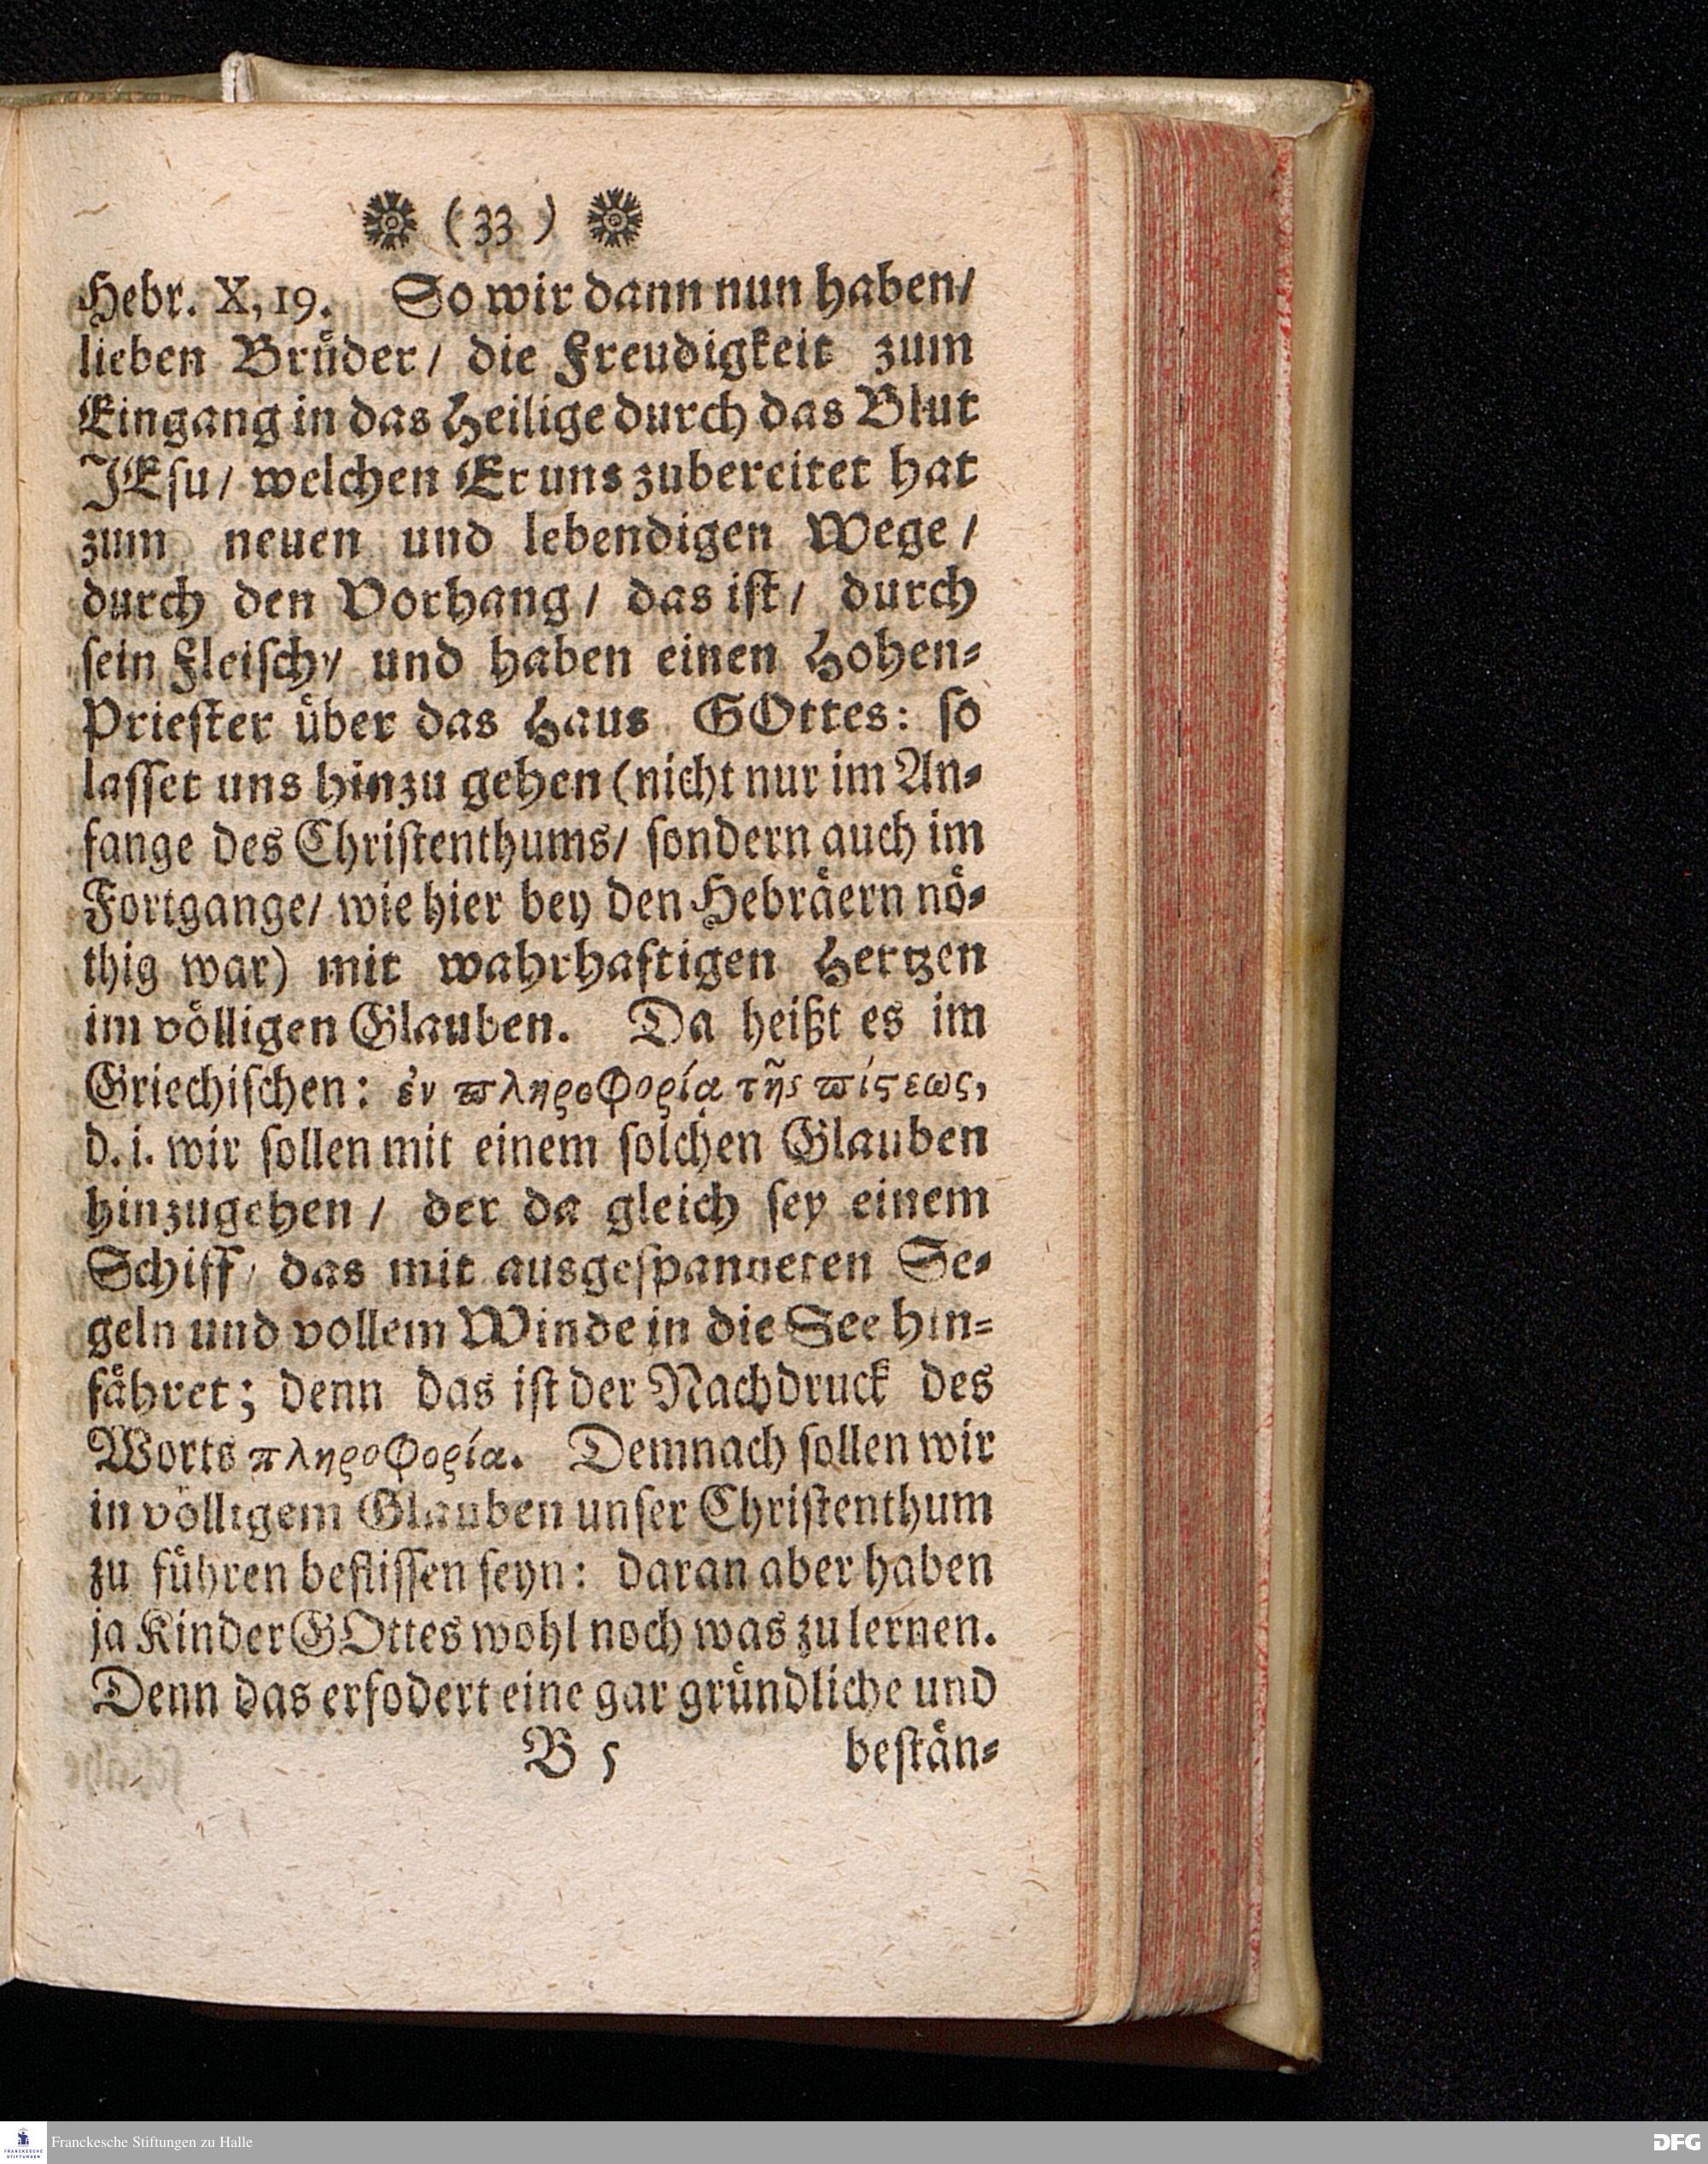 ( 33 )
Hebr. X, 19. So wir dann nun haben/
lieben Bruͤder/ die Freudigkeit zum
Eingang in das Heilige durch das Blut
JEſu/ welchen Er uns zubereitet hat
zum neuen und lebendigen Wege/
durch den Vorhang/ das iſt/ durch
ſein Fleiſch/ und haben einen Hohen-
Prieſter uͤber das Haus GOttes: ſo
laſſet uns hinzu gehen (nicht nur im An-
fange des Chriſtenthums/ ſondern auch im
Fortgange/ wie hier bey den Hebraͤern noͤ-
thig war) mit wahrhaftigen Hertzen
im voͤlligen Glauben. Da heißt es im
Griechiſchen: ἐν ϖληροφορίᾳ τῆς ϖίϛεως,
d. i. wir ſollen mit einem ſolchen Glauben
hinzugehen/ der da gleich ſey einem
Schiff/ das mit ausgeſpanneten Se-
geln und vollem Winde in die See hin-
faͤhret; denn das iſt der Nachdruck des
Worts πληροφορία. Demnach ſollen wir
in voͤlligem Glauben unſer Chriſtenthum
zu fuͤhren befliſſen ſeyn: daran aber haben
ja Kinder GOttes wohl noch was zu lernen.
Denn das erfodert eine gar gruͤndliche und
B 5 beſtaͤn-
FRANCKESCHE STIFTUNGEN
Franckesche Stiftungen zu Halle
DFG